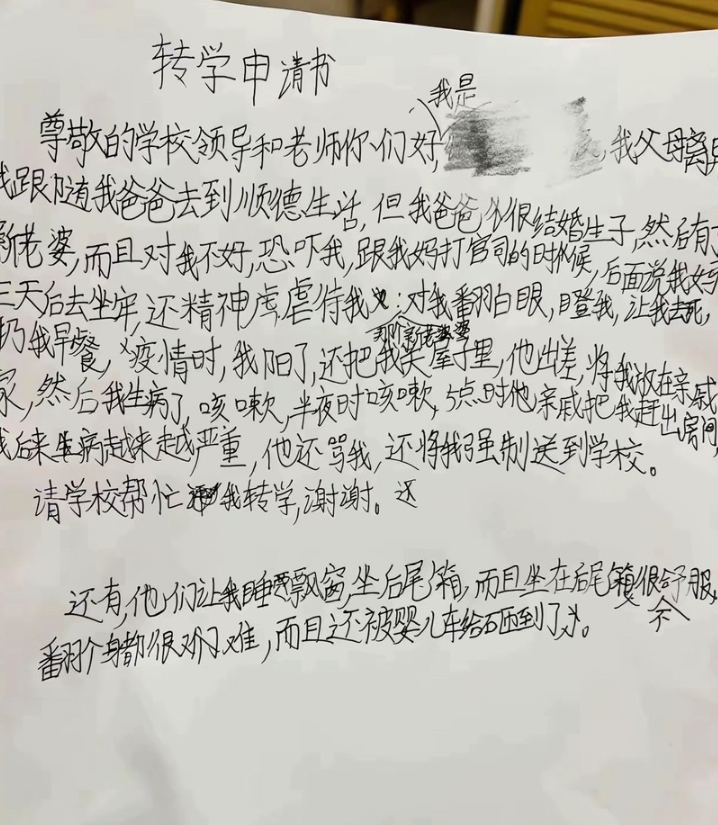 转学申请书
我是
尊敬的学校领导和老师你们好, ,我父母离
我跟随我爸爸去到顺德生活,但我爸爸很结婚生子,然后有
老婆,而且对我不好,恐吓我,跟我妈打官司的时候,后面说我妈
三天后去坐牢,还精神虐待我:对我翻白眼,瞪我,让我去死,
那个新老婆
扔我早餐,疫情时,我阳了,还把我关屋子里,他出差,将我放在亲戚
家,然后我生病了,咳嗽,半夜时咳嗽,5点时他亲戚把我赶出房间,
我后来生病越来越严重,他还骂我,还将我强制送到学校。
请学校帮忙我转学,谢谢。还
还有,他们让我睡飘窗,坐后尾箱,而且坐在后尾箱很舒服,
不
翻个身都很难,而且还被婴儿车给砸到了头。